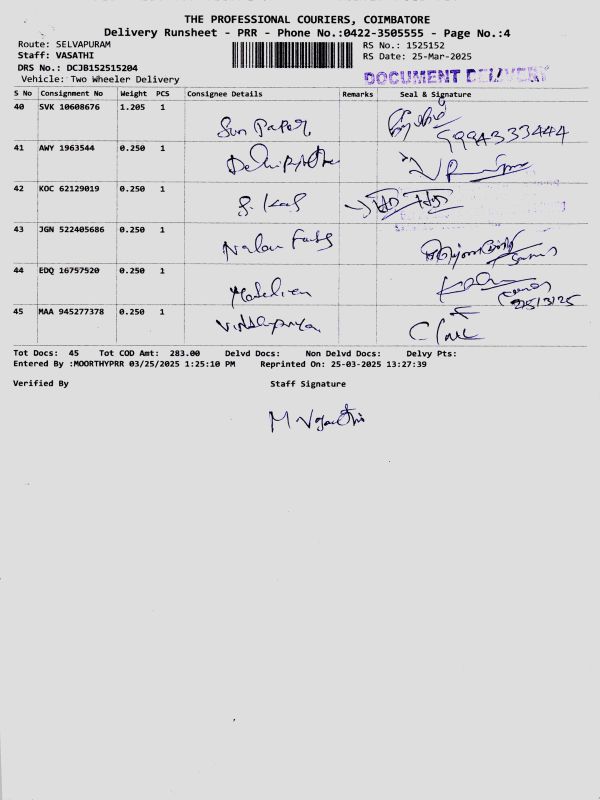 THE PROFESSIONAL COURIERS, COIMBATORE
Delivery Runsheet - PRR - Phone No.:0422-3505555 - Page No.:4
Route: SELVAPURAM
Staff: VASATHI
DRS No.: DCJB152515204
Vehicle: Two Wheeler Delivery
RS No.: 1525152
RS Date: 25-Mar-2025
DOCUMENT DELIVERY
S No Consignment No Weight PCS Consignee Details Remarks Seal & Signature
40 SVK 10608676 1.205 1 Sun Paper 9994333444
41 AWY 1963544 0.250 1
42 KOC 62129019 0.250 1
43 JGN 522405686 0.250 1
44 EDQ 16757520 0.250 1 25/3/25
45 MAA 945277378 0.250 1
Tot Docs: 45 Tot COD Amt: 283.00 Delvd Docs: Non Delvd Docs: Delvy Pts:
Entered By :MOORTHYPRR 03/25/2025 1:25:10 PM Reprinted On: 25-03-2025 13:27:39
Verified By Staff Signature